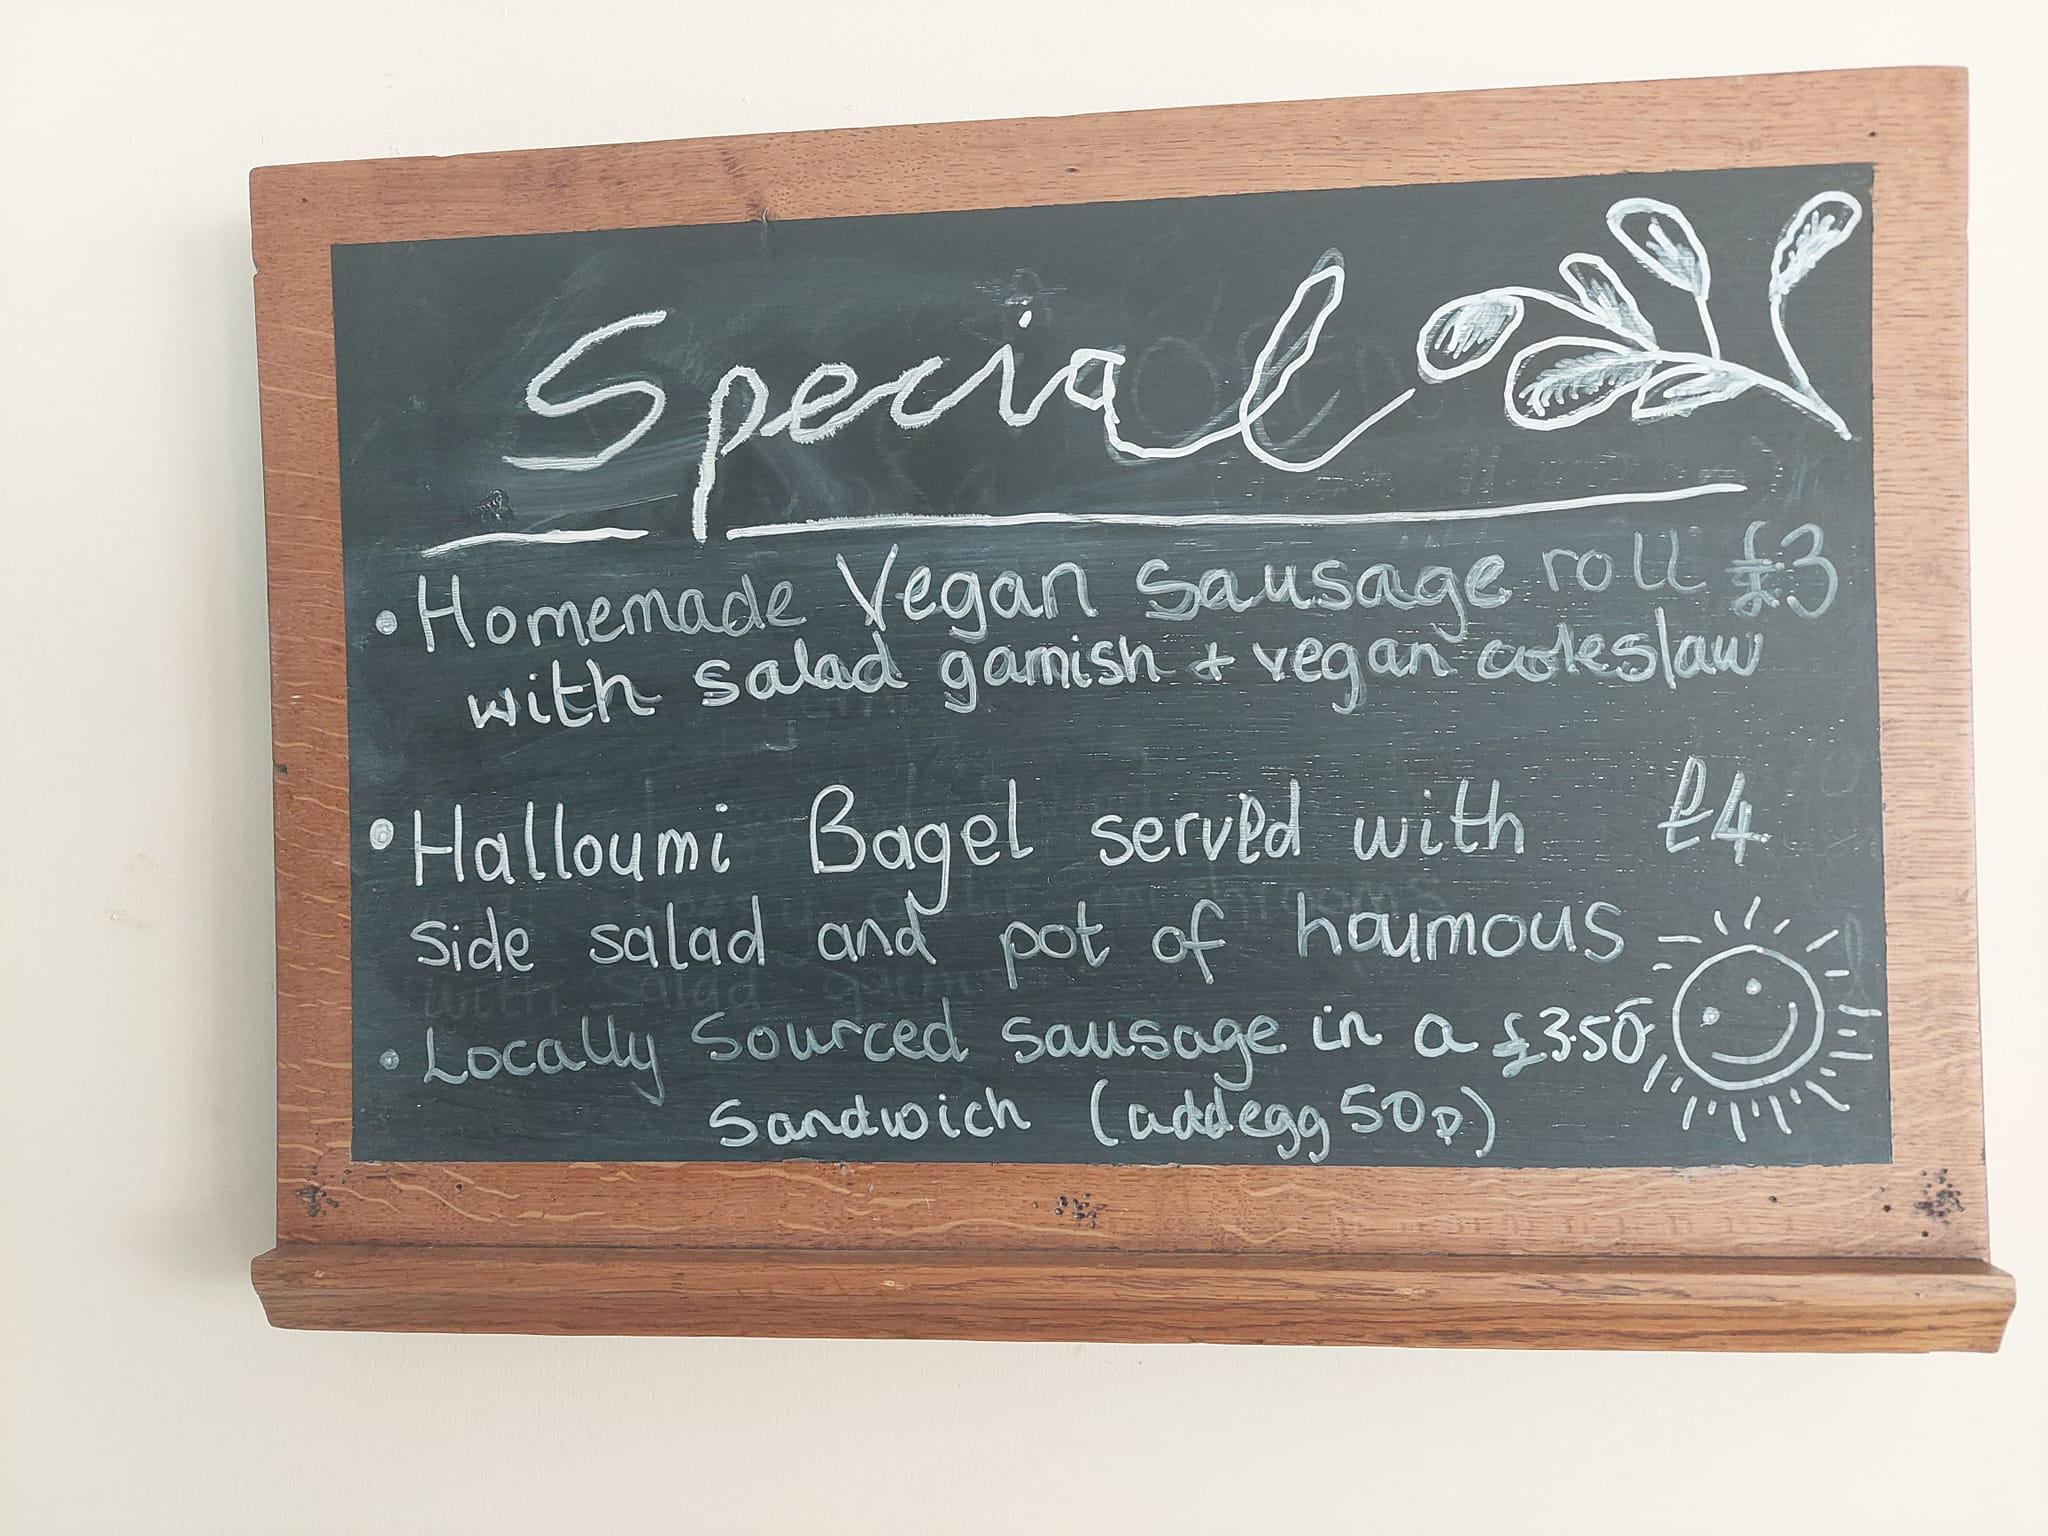 Special
• Homemade Vegan Sausage roll £3
with salad garnish + vegan coleslaw
• Halloumi Bagel served with £4
side salad and pot of houmous
• Locally Sourced sausage in a £3.50
Sandwich (add egg 50p)